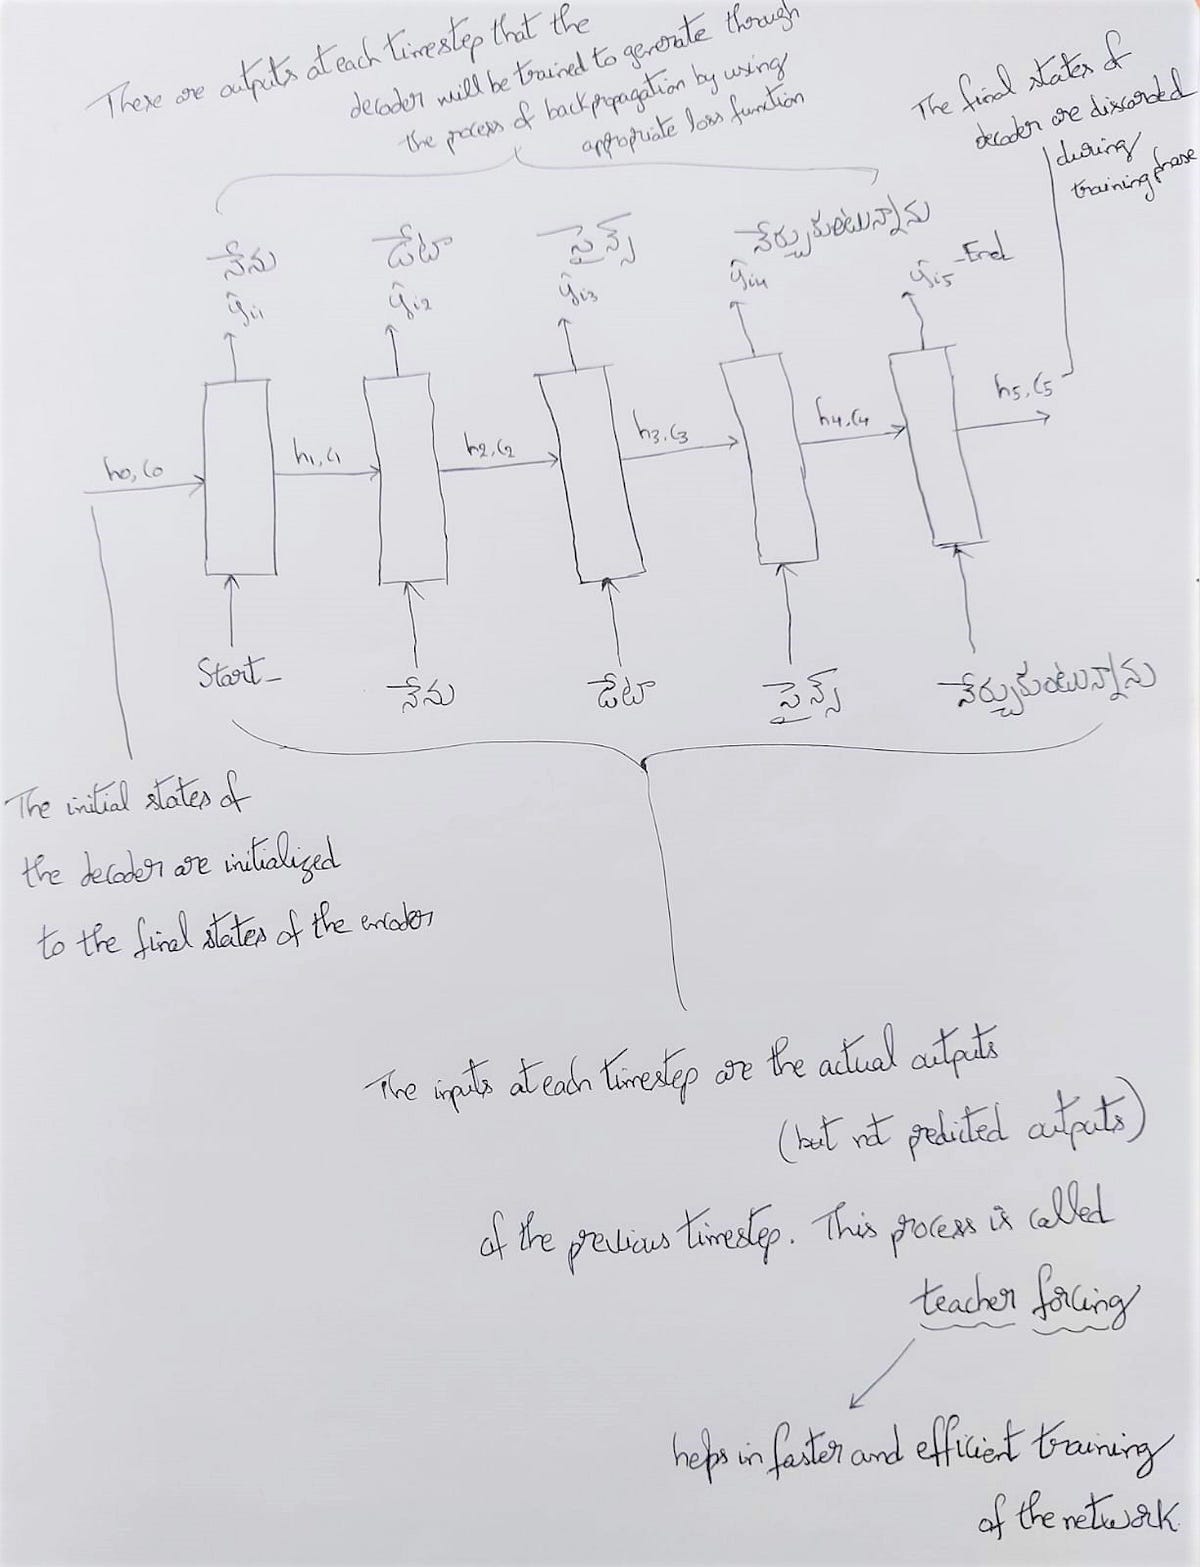 These are outputs at each timestep that the
decoder will be trained to generate through
the process of backpropagation by using
appropriate loss function
The final states of
decoder are discarded
during
training phase
నేను డేటా సైన్స్ నేర్చుకుంటున్నాను
ŷi1 ŷi2 ŷi3 ŷi4 ŷi5 _End
h0, C0 h1, C1 h2, C2 h3, C3 h4, C4 h5, C5
Start_ నేను డేటా సైన్స్ నేర్చుకుంటున్నాను
The initial states of
the decoder are initialized
to the final states of the encoder
The inputs at each timestep are the actual outputs
(but not predicted outputs)
of the previous timestep. This process is called
teacher forcing
helps in faster and efficient training
of the network.